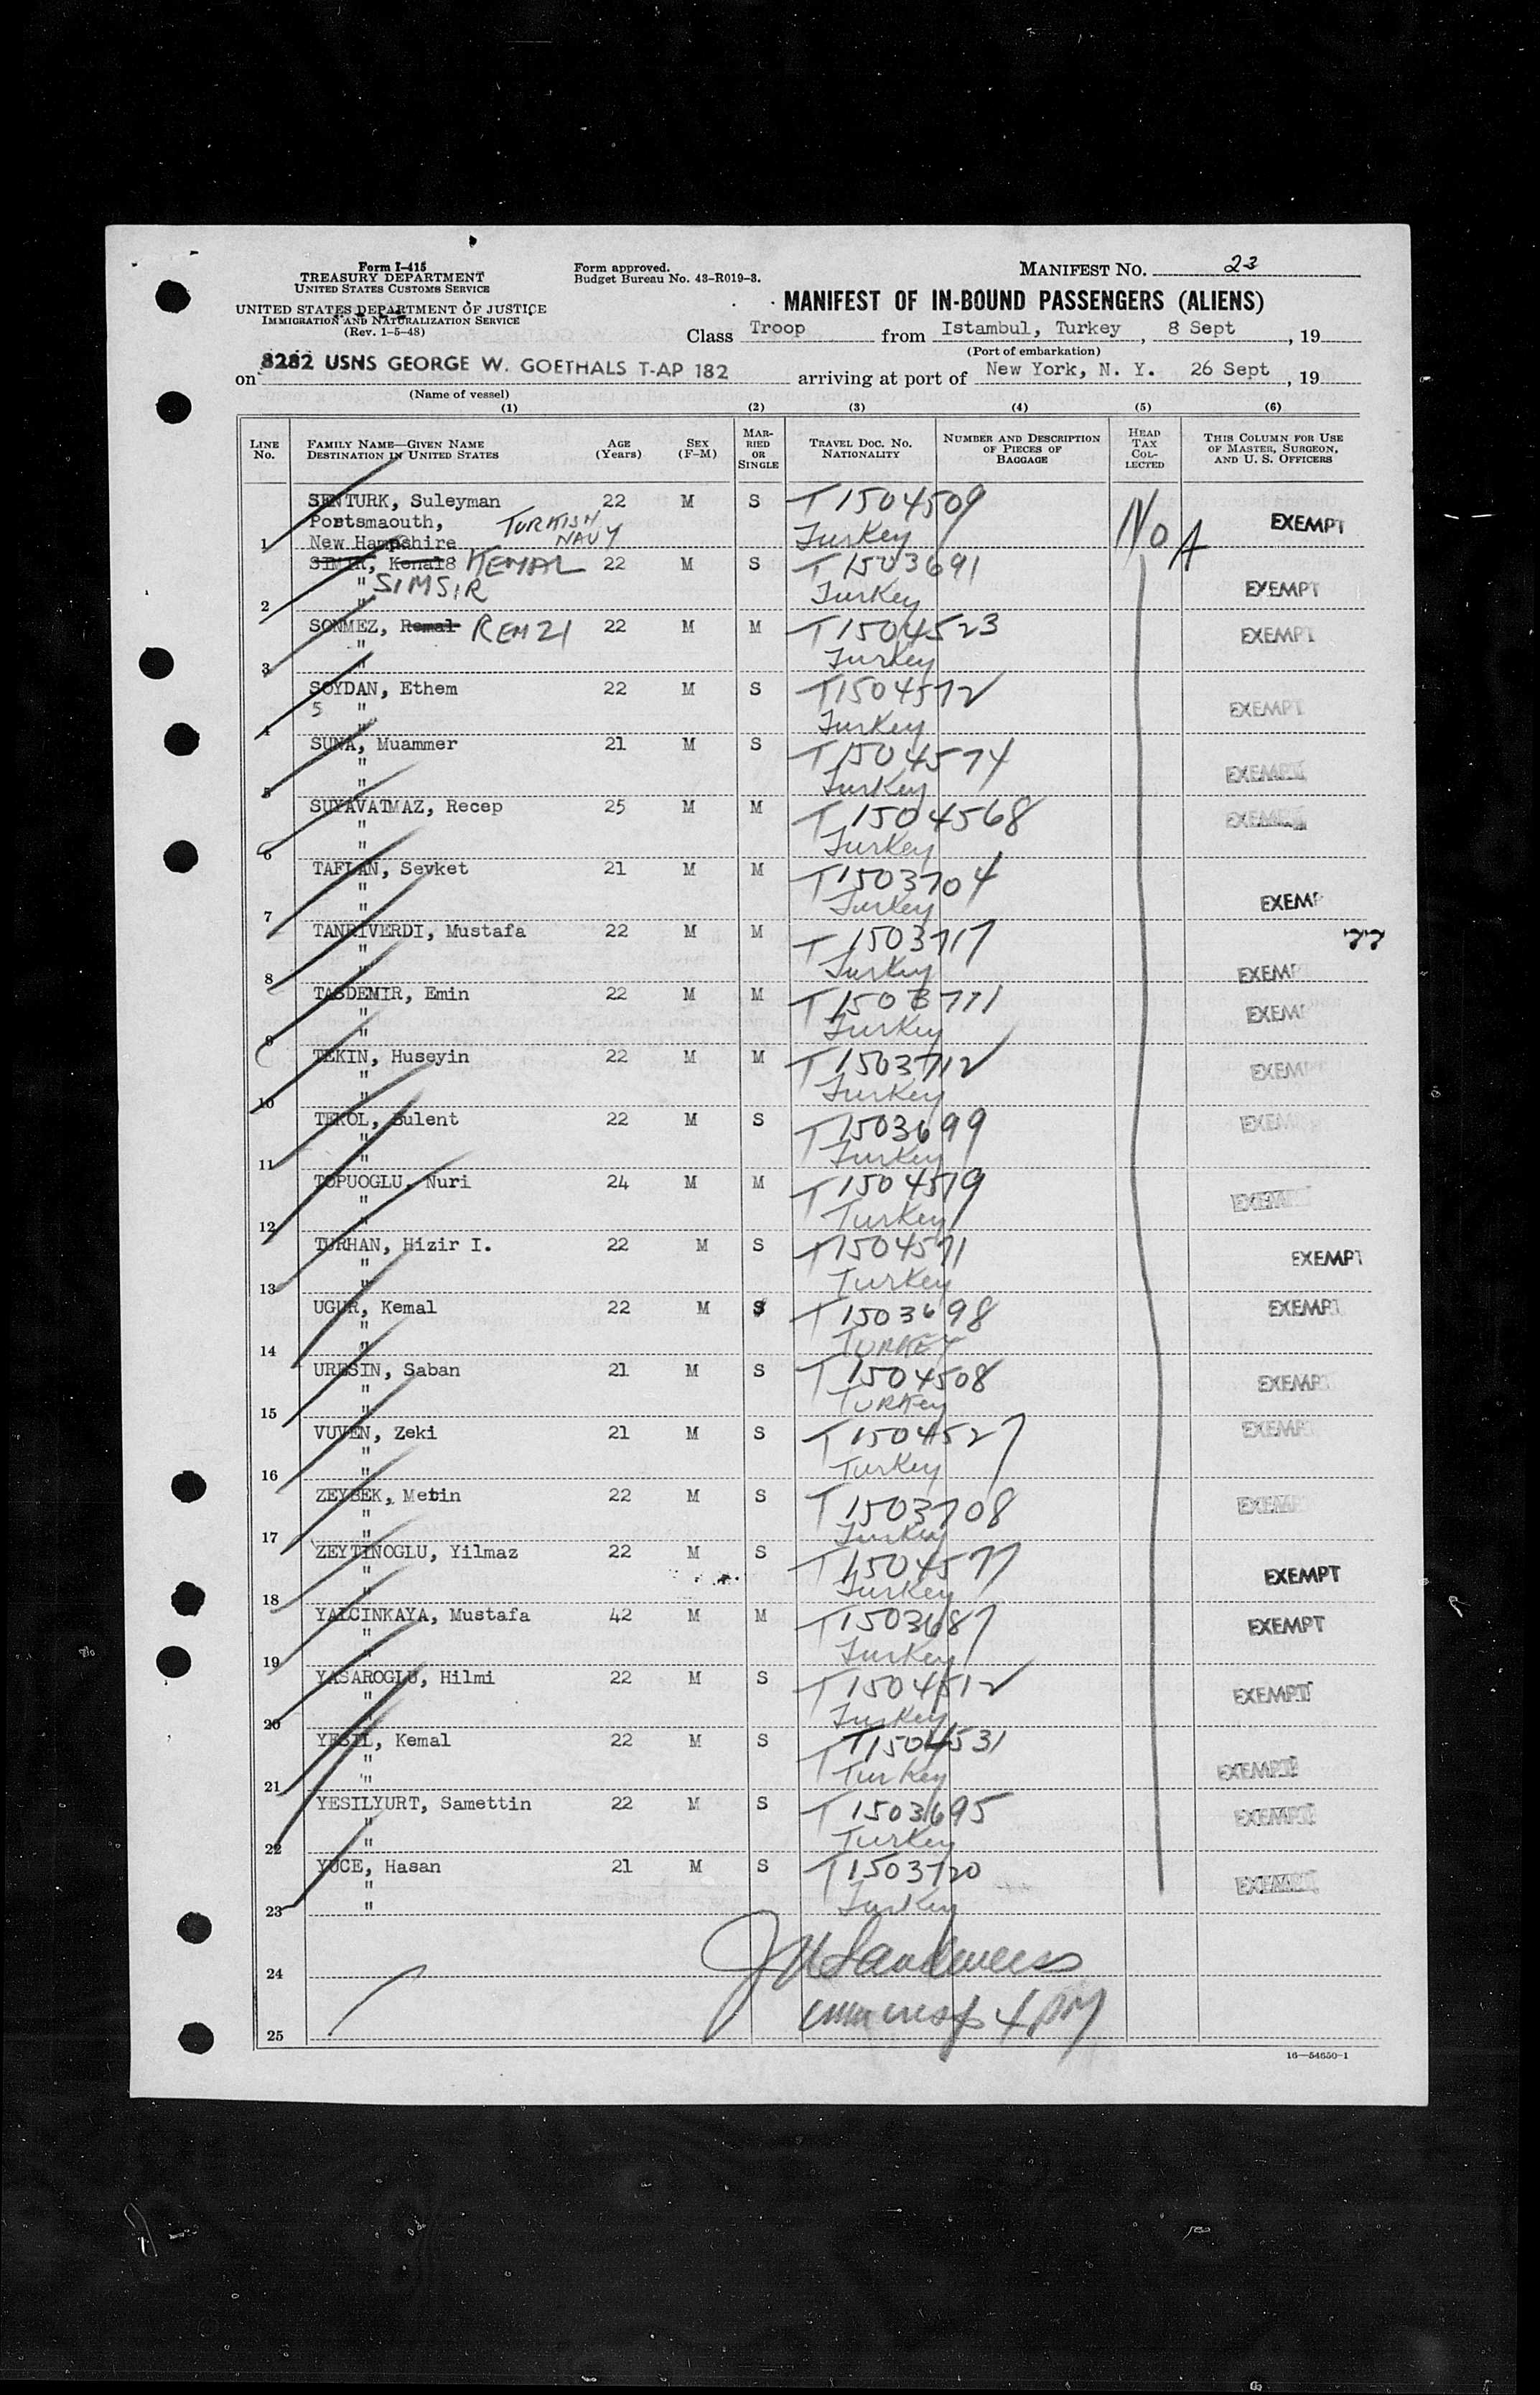 Form I-415
TREASURY DEPARTMENT
UNITED STATES CUSTOMS SERVICE
UNITED STATES DEPARTMENT OF JUSTICE
IMMIGRATION AND NATURALIZATION SERVICE
(Rev. 1-5-48)
Form approved.
Budget Bureau No. 43-R019-3.
MANIFEST NO. 23
MANIFEST OF IN-BOUND PASSENGERS (ALIENS)
Class Troop from Istambul, Turkey, 8 Sept, 19
(Port of embarkation)
on 8282 USNS GEORGE W. GOETHALS T-AP 182 arriving at port of New York, N. Y. 26 Sept, 19
(Name of vessel)
(1) (2) (3) (4) (5) (6)
LINE No. FAMILY NAME—GIVEN NAME DESTINATION IN UNITED STATES AGE (Years) SEX (F-M) MARRIED OR SINGLE TRAVEL DOC. NO. NATIONALITY NUMBER AND DESCRIPTION OF PIECES OF BAGGAGE HEAD TAX COLLECTED THIS COLUMN FOR USE OF MASTER, SURGEON, AND U. S. OFFICERS
SENTURK, Suleyman 22 M S T1504509 EXEMPT
Portsmaouth, TURKISH
1 New Hampshire NAVY Turkey No A
SIMIR, Kenal8 KEMAL 22 M S T1503691
" SIMSIR Turkey EXEMPT
2 "
SONMEZ, Remal REMZI 22 M M T1504523 EXEMPT
"
3 " Turkey
SOYDAN, Ethem 22 M S T1504572
5 " EXEMPT
4 " Turkey
SUNA, Muammer 21 M S T1504574
" EXEMPT
5 " Turkey
SUYAVATMAZ, Recep 25 M M T1504568
" EXEMPT
6 " Turkey
TAFLAN, Sevket 21 M M T1503704
"
7 " Turkey EXEMP
TANRIVERDI, Mustafa 22 M M T1503717
"
8 " Turkey EXEMP
TASDEMIR, Emin 22 M M T1503711
" EXEM
9 " Turkey
TEKIN, Huseyin 22 M M T1503712
" EXEM
10 " Turkey
TEKOL, Bulent 22 M S T1503699
" EXEM
11 " Turkey
TOPUOGLU, Nuri 24 M M T1504519
" EXEM
12 " Turkey
TURHAN, Hizir I. 22 M S T1504571 EXEMPT
"
13 " Turkey
UGUR, Kemal 22 M S T1503698 EXEMPT
"
14 " TURKEY
URESIN, Saban 21 M S T1504508 EXEMPT
"
15 " TURKey
VUVEN, Zeki 21 M S T1504527 EXEMP
"
16 " Turkey
ZEYBEK, Metin 22 M S T1503708 EXEM
"
17 " Turkey
ZEYTINOGLU, Yilmaz 22 M S T1504577
" EXEMPT
18 " Turkey
YALCINKAYA, Mustafa 42 M M T1503687 EXEMPT
"
19 " Turkey
YASAROGLU, Hilmi 22 M S T1504512 EXEMPT
"
20 Turkey
YESIL, Kemal 22 M S T1504531
"
21 " Turkey EXEMPT
YESILYURT, Samettin 22 M S T1503695 EXEMPT
"
22 " Turkey
YUCE, Hasan 21 M S T1503720
" EXEMPT
23 " Turkey
24
25
16—54650-1